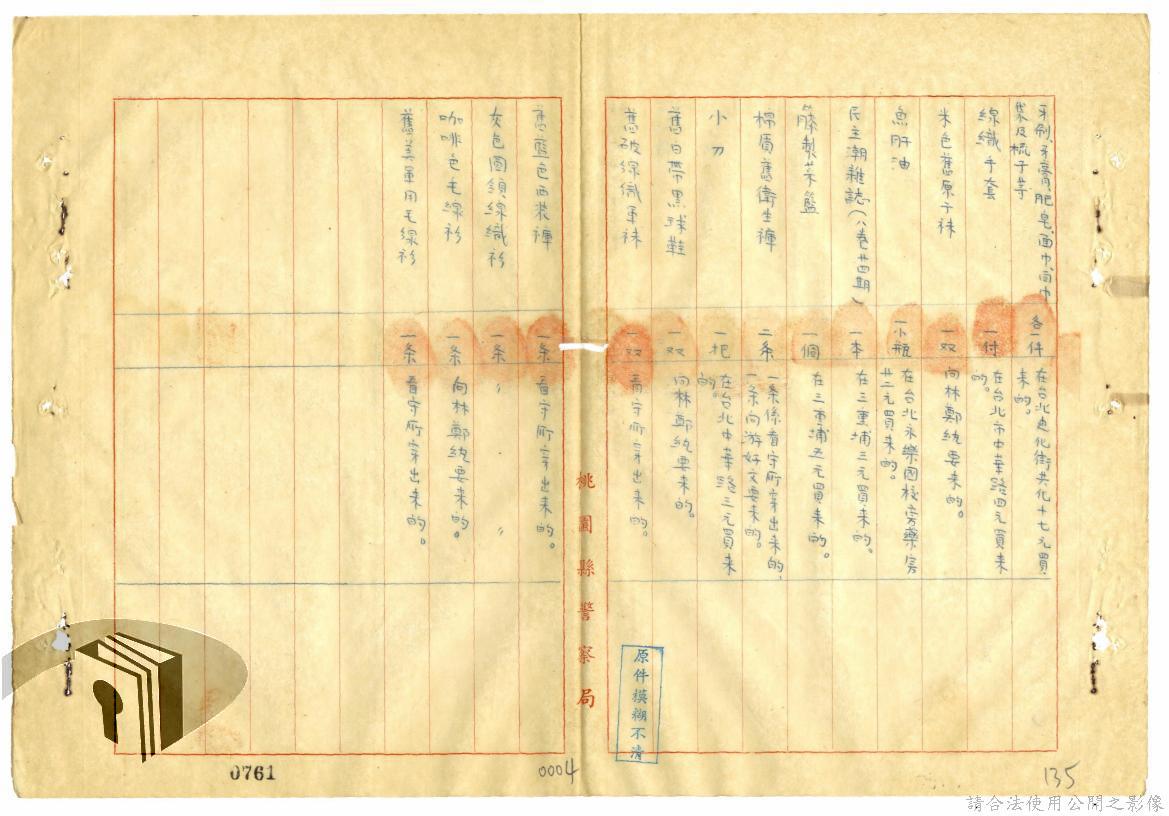 牙刷、牙膏、肥皂、面巾、面巾
袋及梳子等
各一件
在台北迪化街共化十七元買
來的。
線織手套
一付
在台北市中華路四元買來
的。
米色舊原子袜
一双
向林鄭統要來的。
魚肝油
一小瓶
在台北永樂國校旁藥房
廿二元買來的。
民主潮雜誌(八卷廿四期)
一本
在三重埔三元買來的。
籐製菜籃
一個
在三重埔五元買來的。
棉質舊衛生褲
二条
一条係看守所穿出來的、
一条向游好文要來的。
小刀
一把
在台北中華路三元買來
的。
舊白帶黑球鞋
一双
向林鄭統要來的。
舊破線織軍袜
一双
看守所穿出來的。
桃園縣警察局
舊藍色西裝褲
一条
看守所穿出來的。
灰色圓領線織衫
一条
〃 〃
咖啡色毛線衫
一条
向林鄭統要來的。
舊美軍用毛線衫
一条
看守所穿出來的。
原件模糊不清
0761
0004
135
請合法使用公開之影像